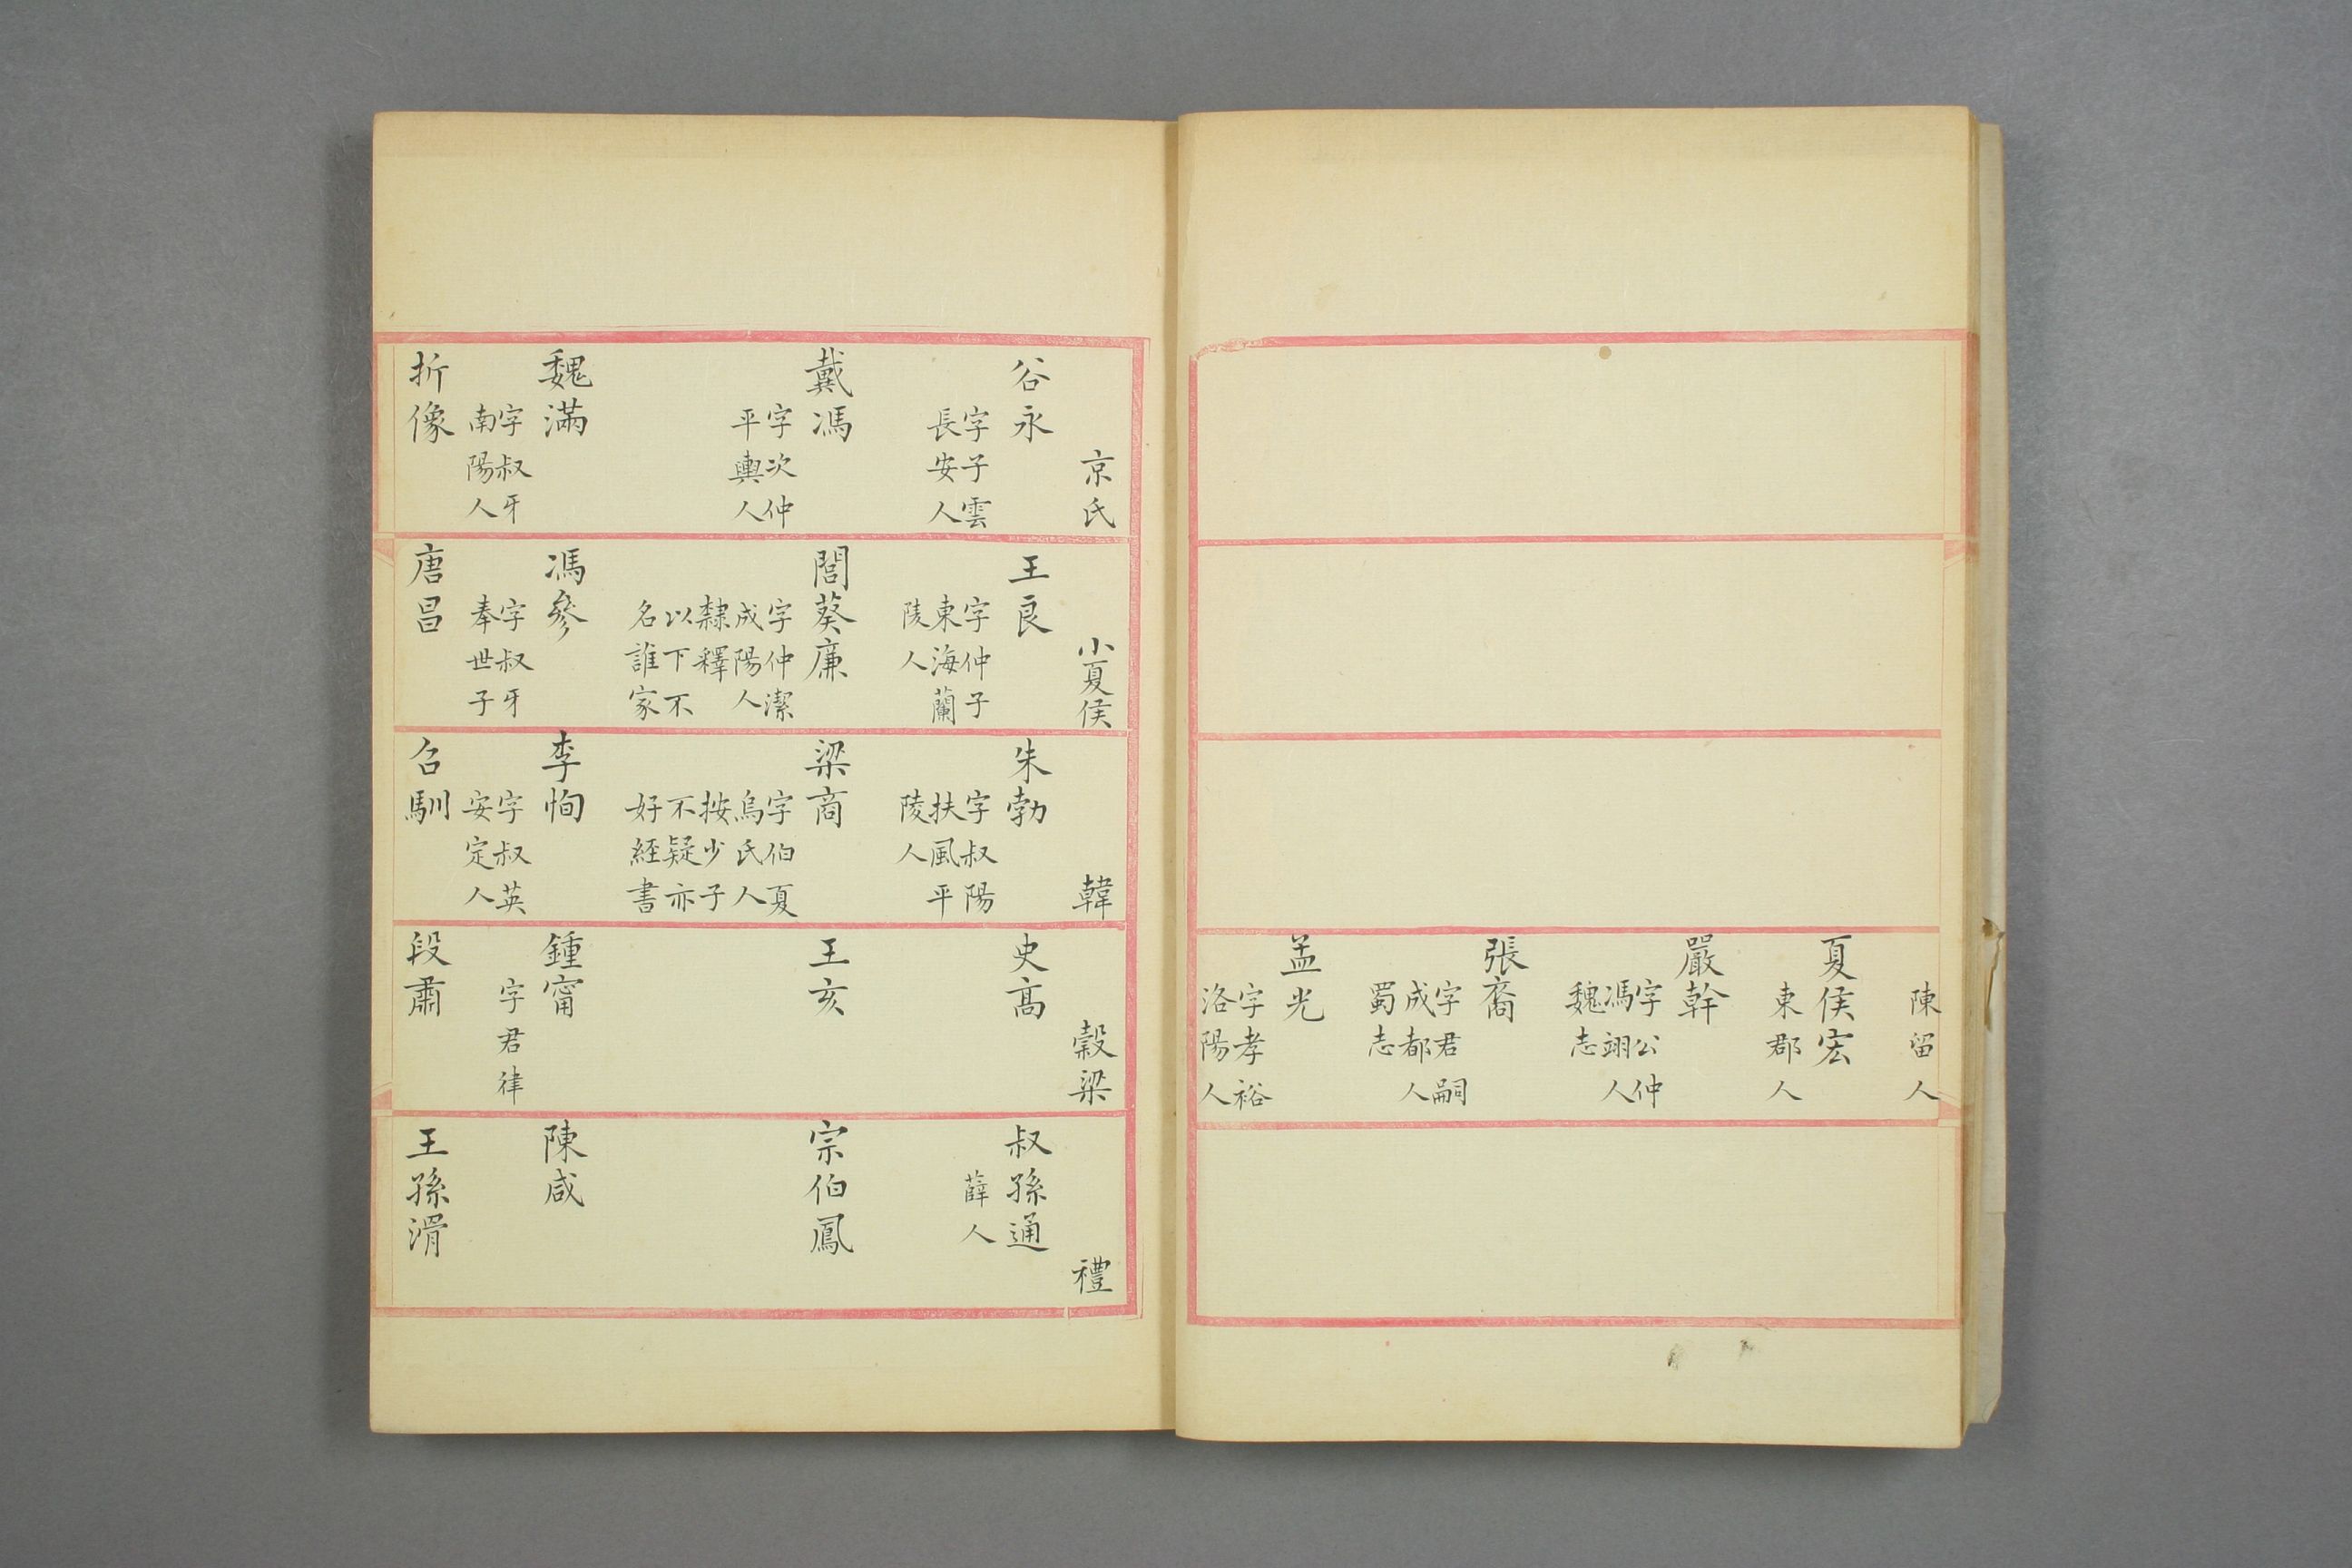 陳留人
夏侯宏
東郡人
嚴幹
字公仲
馮翊人
魏志
張裔
字君嗣
成都人
蜀志
孟光
字孝裕
洛陽人
京氏
谷永
字子雲
長安人
戴馮
字次仲
平輿人
魏滿
字叔牙
南陽人
折像
小夏侯
王良
字仲子
東海蘭
陵人
閭葵廉
字仲潔
成陽人
隸釋
以下不
名誰家
馮參
字叔牙
奉世子
唐昌
韓
朱勃
字叔陽
扶風平
陵人
梁商
字伯夏
烏氏人
按少子
不疑亦
好經書
李恂
字叔英
安定人
召馴
榖梁
史高
王亥
鍾甯
字君律
段肅
禮
叔孫通
薛人
宗伯鳳
陳咸
王孫滑